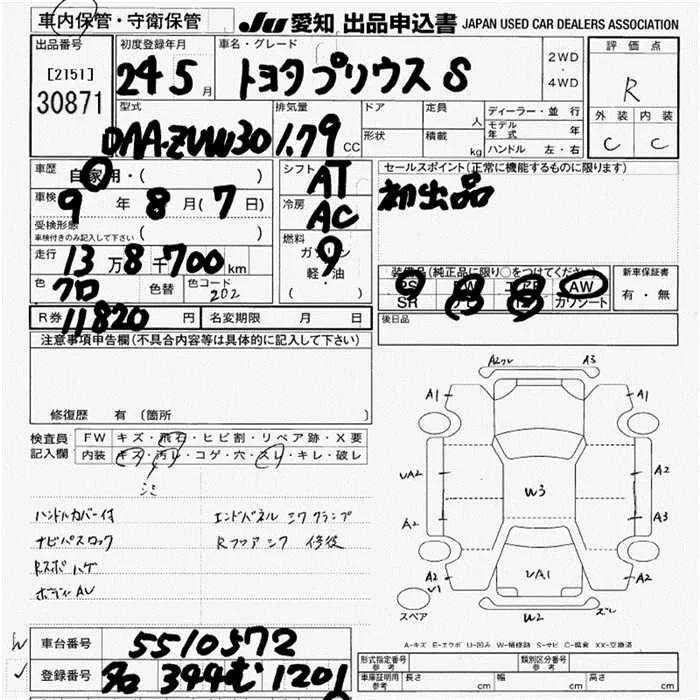 車内保管・守衛保管
JU 愛知 出品申込書 JAPAN USED CAR DEALERS ASSOCIATION
出品番号
[2151]
30871
初度登録年月
24 5 月
車名・グレード
トヨタプリウス S
2WD
・
4WD
評価点
R
外装 内装
C C
型式
DAA-ZVW30
排気量
1.79 CC
ドア
定員 人
形状
積載 kg
ディーラー・並行
モデル年式 年
ハンドル 左・右
車歴
自家用・( )
車検
9 年 8 月(7日)
受検形態
車検付きのみ記入して下さい ( )
走行
13万8千700km
色
クロ
色替
色コード
202
シフト
AT
冷房
AC
燃料
ガソリン
軽・油
( )
セールスポイント(正常に機能するものに限ります)
初出品
装備品(純正品に限り○をつけてください)
PS PW エアB AW
SR カワシート
新車保証書
有・無
R券
11820円
名変期限 月 日
後日品
注意事項申告欄(不具合内容等は具体的に記入して下さい)
修復歴 有 (箇所
検査員記入欄
FW キズ・飛石・ヒビ割・リペア跡・X要
内装 キズ・汚レ・コゲ・穴・スレ・キレ・破レ
シミ
ハンドルカバー付
エンドパネル ミワクランプ
ナビパスロック
Rフロア シワ 修後
Rスポ ハゲ
ボディAU
A2ワレ A3
A1 A1
UA2 A2
W3
A2 A3
A2 U1
UA1
A2
スペア
W2 ズレ
A-キズ E-エクボ U-凹み W-補修跡 S-サビ C-腐食 XX-交換済
車台番号
5510572
登録番号
名 344 む 1201
形式指定番号 参考
類別区分番号 参考
車庫証明用 参考
長さ cm
幅 cm
高さ cm